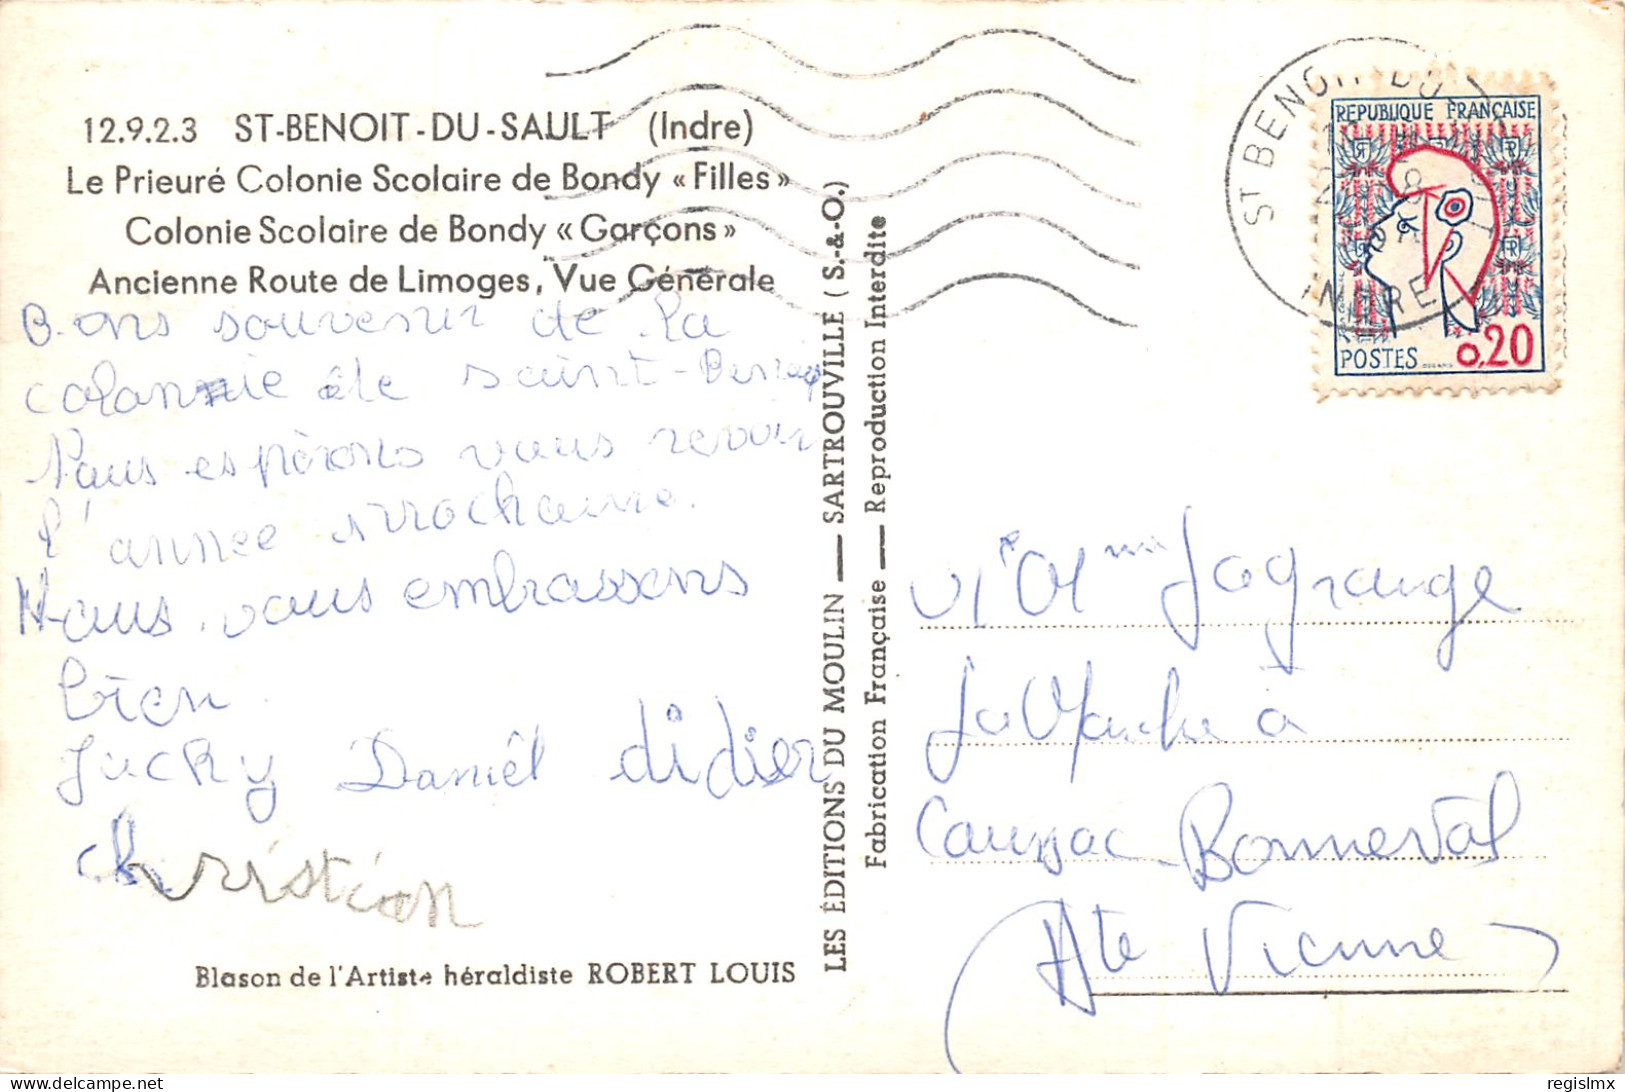 12.9.2.3 ST-BENOIT-DU-SAULT (Indre)
Le Prieuré Colonie Scolaire de Bondy « Filles »
Colonie Scolaire de Bondy « Garçons »
Ancienne Route de Limoges, Vue Générale
Bons souvenir de la
colonnie de saint-Benoit
Nous espérons vous revoir
l'année prochaine.
Nous vous embrassons
bien
Jacky Daniel didier
christian
Blason de l'Artiste héraldiste ROBERT LOUIS
LES ÉDITIONS DU MOULIN — SARTROUVILLE (S.-&-O.)
Fabrication Française — Reproduction Interdite
ST BENOIT DU
INDRE
REPUBLIQUE FRANÇAISE
POSTES 0,20
Mme Lagrange
La
à
Bonneval
Hte Vienne
delcampe.net
regislmx